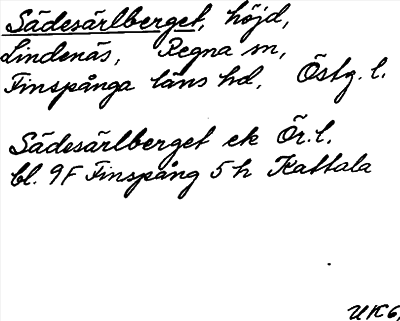 Sädesärlberget, höjd,
Lindenäs, Regna sn,
Finspånga läns hd, Östg. l.
Sädesärlberget ek Ör. l.
bl. 9F Finspång 5 h Kattala
UK6,